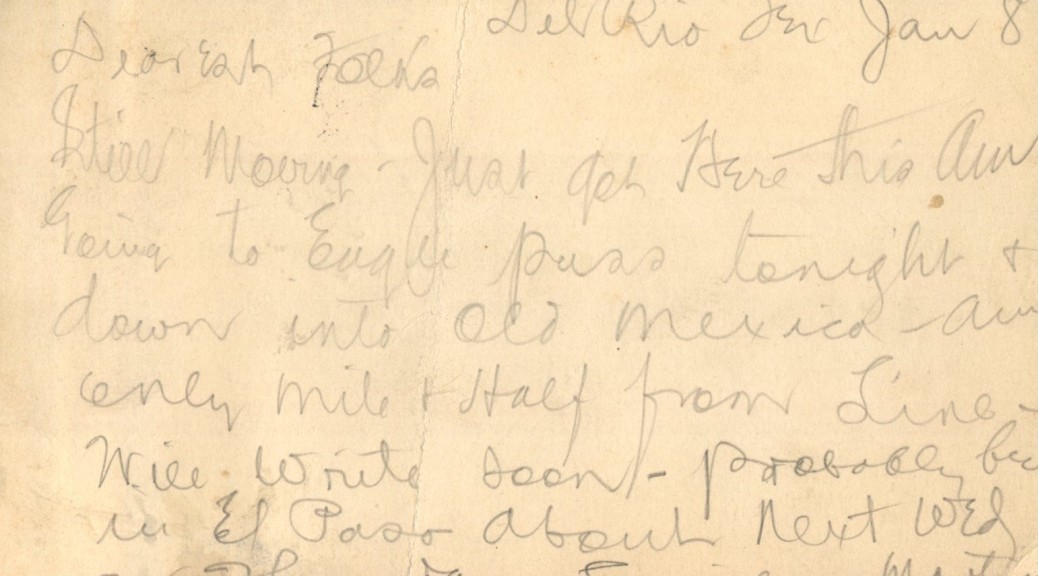 Del Rio Tex Jan 8
Dearest Folks
Still Moving - Just got Here this Am
Going to Eagle pass tonight +
down into Old Mexico - am
only mile + Half from Line -
Will Write soon - probably be
in El Paso about Next Wed